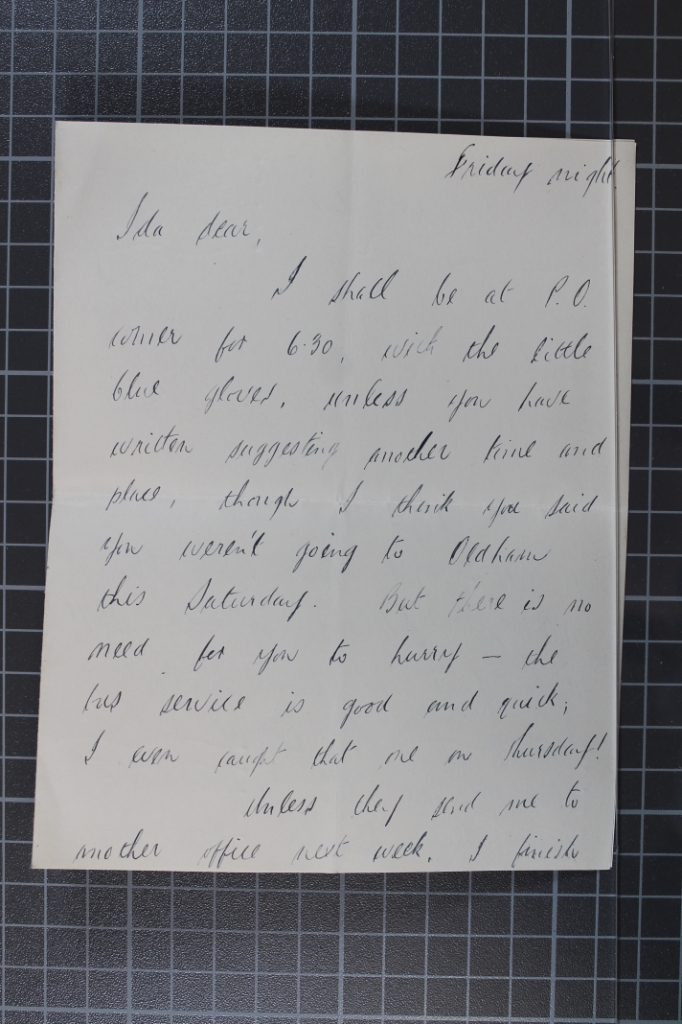 Friday night
Ida dear,
I shall be at P.O.
corner for 6.30, with the little
blue gloves, unless you have
written suggesting another time and
place, though I think you said
you weren't going to Oldham
this Saturday. But there is no
need for you to hurry — the
bus service is good and quick;
I even caught that one on Thursday!
Unless they send me to
another office next week, I finish